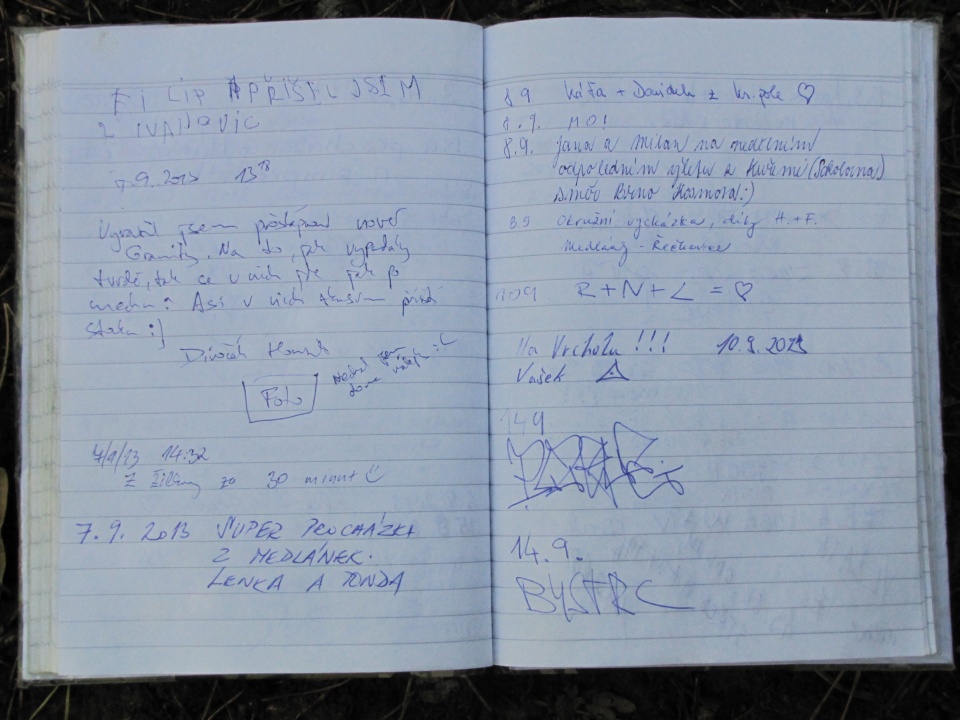 FILIP PŘIŠEL JSEM
Z IVANOVIC
7.9. 2013 13 18
jsem nové
Granity. Na to, jak vypadaly
tvrdě, tak se v nich jde jak po
mechu. Asi v nich zkusím příště
stovku :]
Divočák Honza
Foto
7/9/13 14:32
Z za 30 minut
7.9. 2013 SUPER PROCHÁZKA
Z MEDLÁNEK.
LENKA A TONDA
8.9. Káťa + Davídek z Kr. pole ♡
8.9. NO!
8.9. Jana a Milan na nedělním
odpoledním výletu z Kuřimi (Sokolovna)
směr Brno Kosmova :)
8.9 Okružní vycházka, díky H. + F.
Medlánky - Řečkovice
10.9 R + N + L = ♡
Na Vrcholu !!! 10.9. 2013
Vašek
14 9
14.9.
BYSTRC